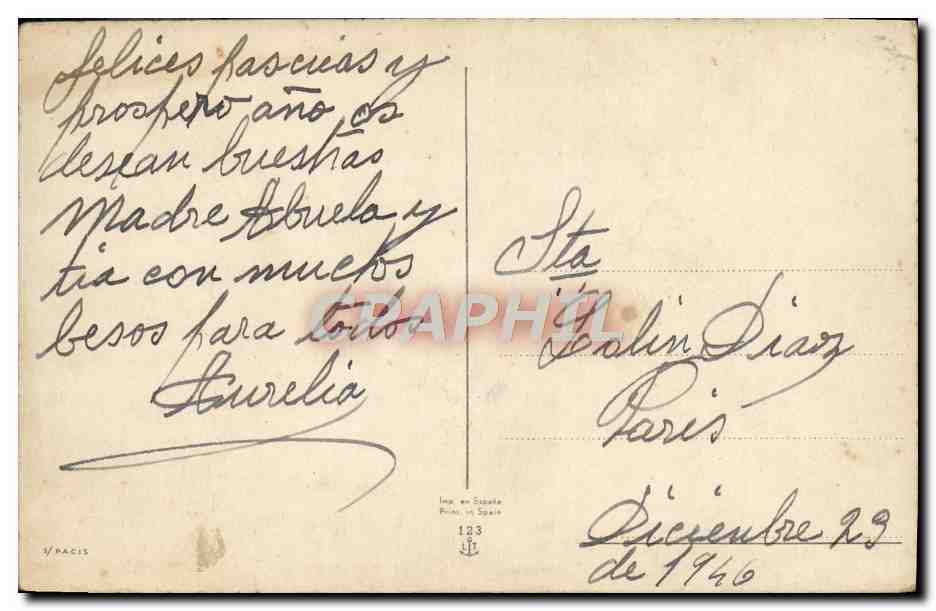 felices pascuas y
prospero año os
desean buestras
Madre Abuela y
tia con muchos
besos para todos
Aurelia
Sta
Diaz
Paris
Diciembre 23
de 1946
Imp. en España
Print. in Spain
123
L T
S/PACIS
CRAPHIL